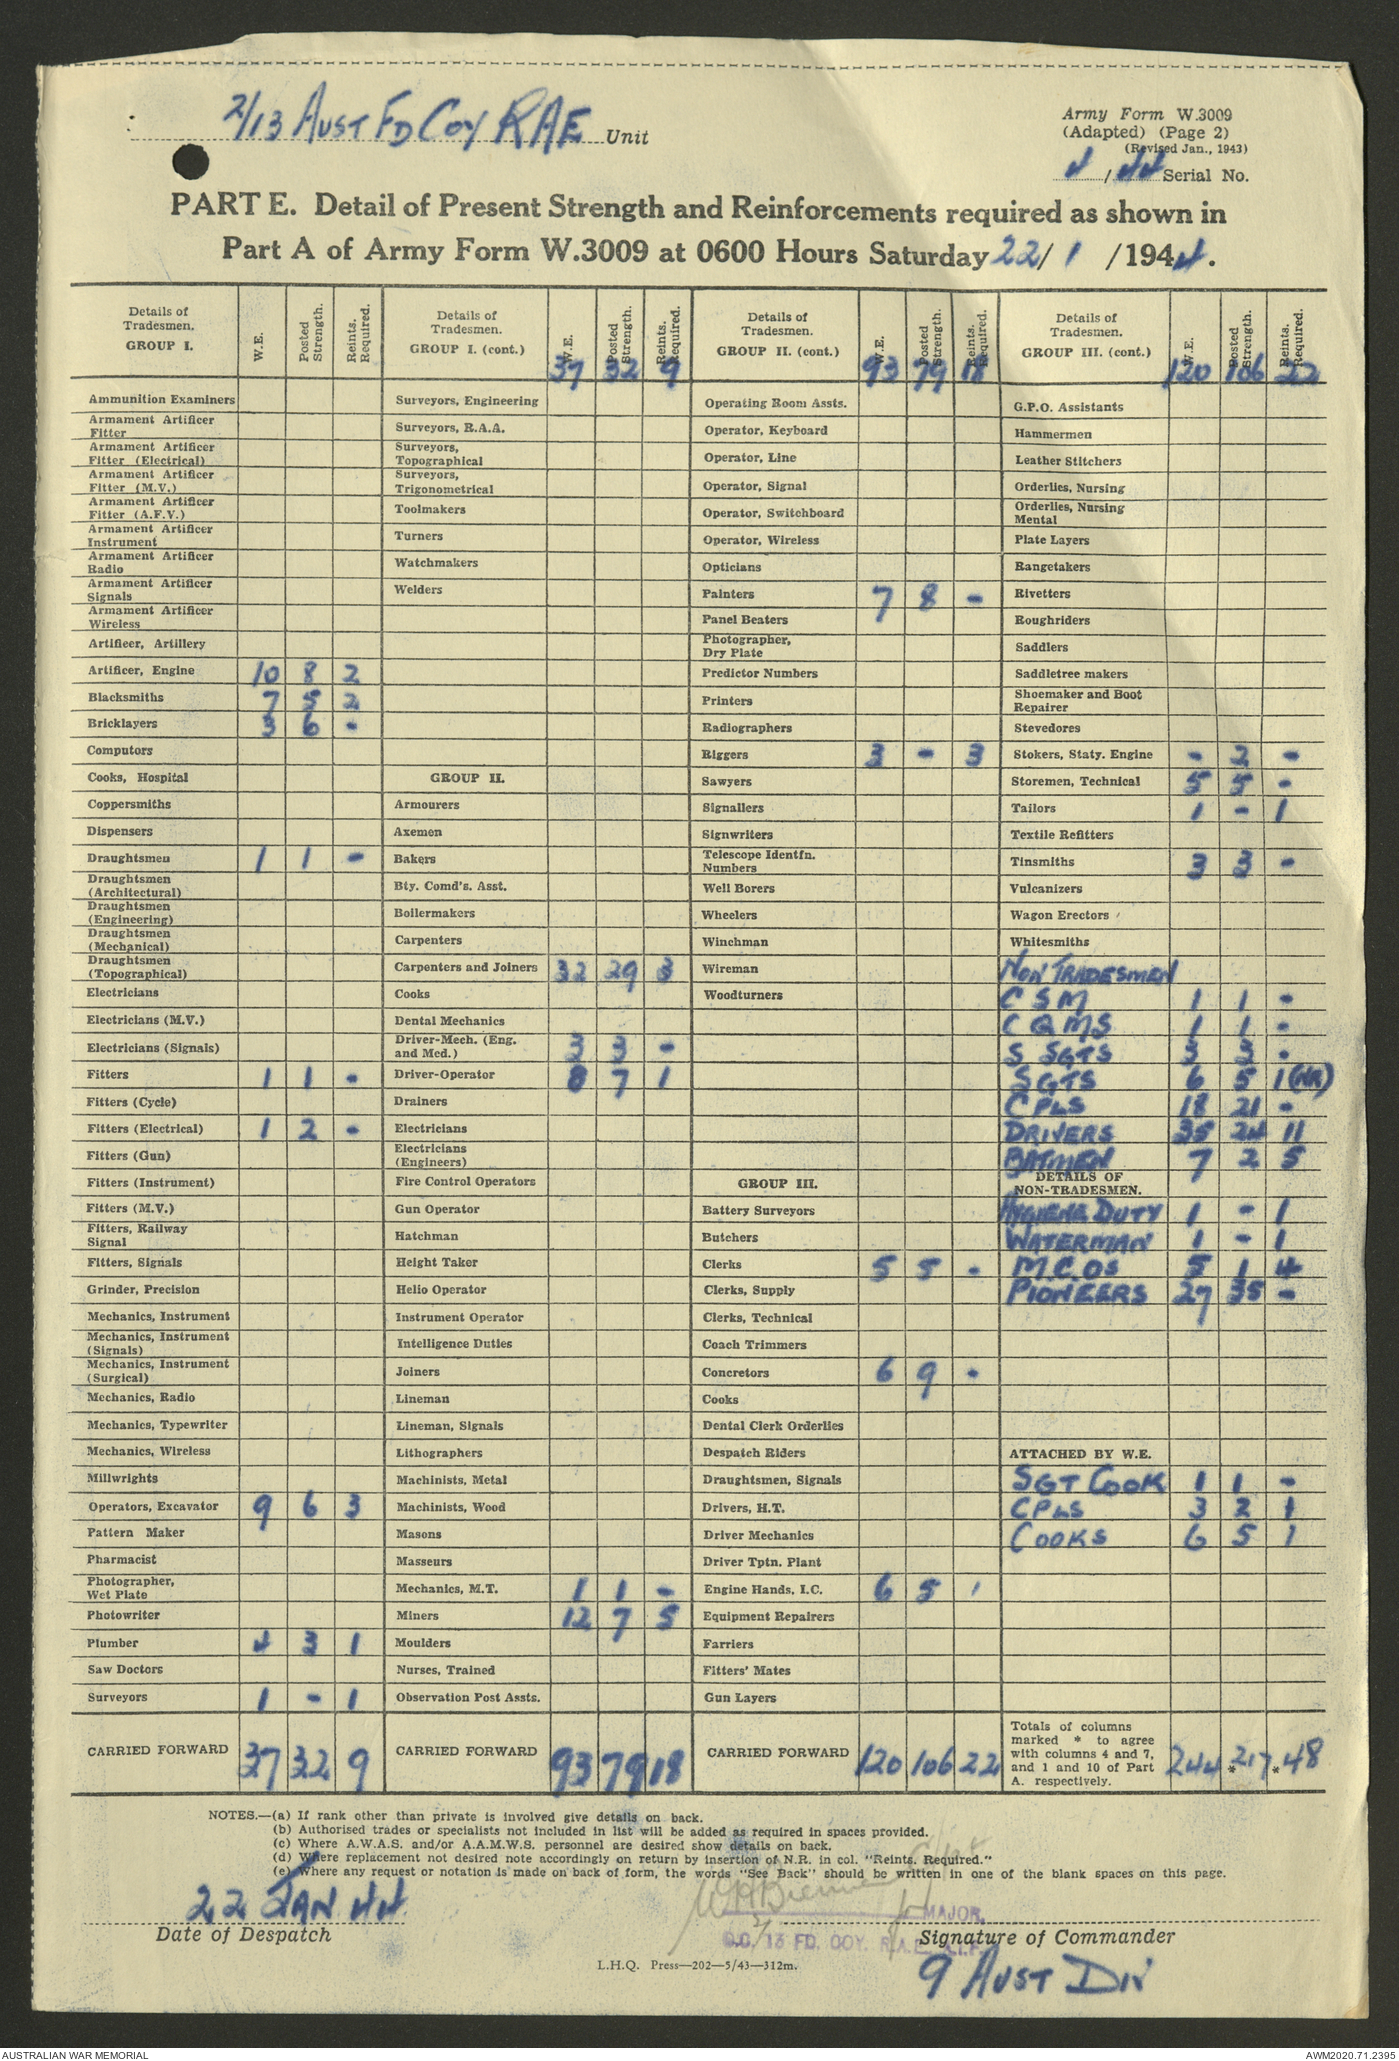 2/13 AUST FD COY RAE Unit
Army Form W.3009
(Adapted) (Page 2)
(Revised Jan., 1943)
4/44 Serial No.
PART E. Detail of Present Strength and Reinforcements required as shown in
Part A of Army Form W.3009 at 0600 Hours Saturday 22/ 1 /1944.
Details of Tradesmen. GROUP I. W.E. Posted Strength. Reints. Required.
Ammunition Examiners
Armament Artificer Fitter
Armament Artificer Fitter (Electrical)
Armament Artificer Fitter (M.V.)
Armament Artificer Fitter (A.F.V.)
Armament Artificer Instrument
Armament Artificer Radio
Armament Artificer Signals
Armament Artificer Wireless
Artificer, Artillery
Artificer, Engine 10 8 2
Blacksmiths 7 5 2
Bricklayers 3 6 -
Computors
Cooks, Hospital
Coppersmiths
Dispensers
Draughtsmen 1 1 -
Draughtsmen (Architectural)
Draughtsmen (Engineering)
Draughtsmen (Mechanical)
Draughtsmen (Topographical)
Electricians
Electricians (M.V.)
Electricians (Signals)
Fitters 1 1 -
Fitters (Cycle)
Fitters (Electrical) 1 2 -
Fitters (Gun)
Fitters (Instrument)
Fitters (M.V.)
Fitters, Railway Signal
Fitters, Signals
Grinder, Precision
Mechanics, Instrument
Mechanics, Instrument (Signals)
Mechanics, Instrument (Surgical)
Mechanics, Radio
Mechanics, Typewriter
Mechanics, Wireless
Millwrights
Operators, Excavator 9 6 3
Pattern Maker
Pharmacist
Photographer, Wet Plate
Photowriter
Plumber 4 3 1
Saw Doctors
Surveyors 1 - 1
CARRIED FORWARD 37 32 9
Details of Tradesmen. GROUP I. (cont.) W.E. Posted Strength. Reints. Required.
37 32 9
Surveyors, Engineering
Surveyors, R.A.A.
Surveyors, Topographical
Surveyors, Trigonometrical
Toolmakers
Turners
Watchmakers
Welders
GROUP II.
Armourers
Axemen
Bakers
Bty. Comd's. Asst.
Boilermakers
Carpenters
Carpenters and Joiners 32 29 3
Cooks
Dental Mechanics
Driver-Mech. (Eng. and Med.) 3 3 -
Driver-Operator 8 7 1
Drainers
Electricians
Electricians (Engineers)
Fire Control Operators
Gun Operator
Hatchman
Height Taker
Helio Operator
Instrument Operator
Intelligence Duties
Joiners
Lineman
Lineman, Signals
Lithographers
Machinists, Metal
Machinists, Wood
Masons
Masseurs
Mechanics, M.T. 1 1 -
Miners 12 7 5
Moulders
Nurses, Trained
Observation Post Assts.
CARRIED FORWARD 93 79 18
Details of Tradesmen. GROUP II. (cont.) W.E. Posted Strength. Reints. Required.
93 79 18
Operating Room Assts.
Operator, Keyboard
Operator, Line
Operator, Signal
Operator, Switchboard
Operator, Wireless
Opticians
Painters 7 8 -
Panel Beaters
Photographer, Dry Plate
Predictor Numbers
Printers
Radiographers
Riggers 3 - 3
Sawyers
Signallers
Signwriters
Telescope Identfn. Numbers
Well Borers
Wheelers
Winchman
Wireman
Woodturners
GROUP III.
Battery Surveyors
Butchers
Clerks 5 5 -
Clerks, Supply
Clerks, Technical
Coach Trimmers
Concretors 6 9 -
Cooks
Dental Clerk Orderlies
Despatch Riders
Draughtsmen, Signals
Drivers, H.T.
Driver Mechanics
Driver Tptn. Plant
Engine Hands, I.C. 6 5 1
Equipment Repairers
Farriers
Fitters' Mates
Gun Layers
CARRIED FORWARD 120 106 22
Details of Tradesmen. GROUP III. (cont.) W.E. Posted Strength. Reints. Required.
120 106 22
G.P.O. Assistants
Hammermen
Leather Stitchers
Orderlies, Nursing
Orderlies, Nursing Mental
Plate Layers
Rangetakers
Rivetters
Roughriders
Saddlers
Saddletree makers
Shoemaker and Boot Repairer
Stevedores
Stokers, Staty. Engine - 2 -
Storemen, Technical 5 5 -
Tailors 1 - 1
Textile Refitters
Tinsmiths 3 3 -
Vulcanizers
Wagon Erectors
Whitesmiths
NON TRADESMEN
C S M 1 1 -
C Q M S 1 1 -
S SGTS 3 3 -
SGTS 6 5 1 (NR)
CPLS 18 21 -
DRIVERS 35 24 11
BATMEN 7 2 5
DETAILS OF NON-TRADESMEN.
HYGIENE DUTY 1 - 1
WATERMAN 1 - 1
M.C.OS 5 1 4
PIONEERS 27 35 -
ATTACHED BY W.E.
SGT COOK 1 1 -
CPLS 3 2 1
COOKS 6 5 1
Totals of columns marked * to agree with columns 4 and 7, and 1 and 10 of Part A. respectively. 244 *217 *48
NOTES.—(a) If rank other than private is involved give details on back.
(b) Authorised trades or specialists not included in list will be added as required in spaces provided.
(c) Where A.W.A.S. and/or A.A.M.W.S. personnel are desired show details on back.
(d) Where replacement not desired note accordingly on return by insertion of N.R. in col. "Reints. Required."
(e) Where any request or notation is made on back of form, the words "See Back" should be written in one of the blank spaces on this page.
22 JAN 44
Date of Despatch
Capt
for MAJOR,
O.C. 2/13 FD. COY. R.A.E. A.I.F.
Signature of Commander
L.H.Q. Press—202—5/43—312m.
9 AUST DIV
AUSTRALIAN WAR MEMORIAL
AWM2020.71.2395